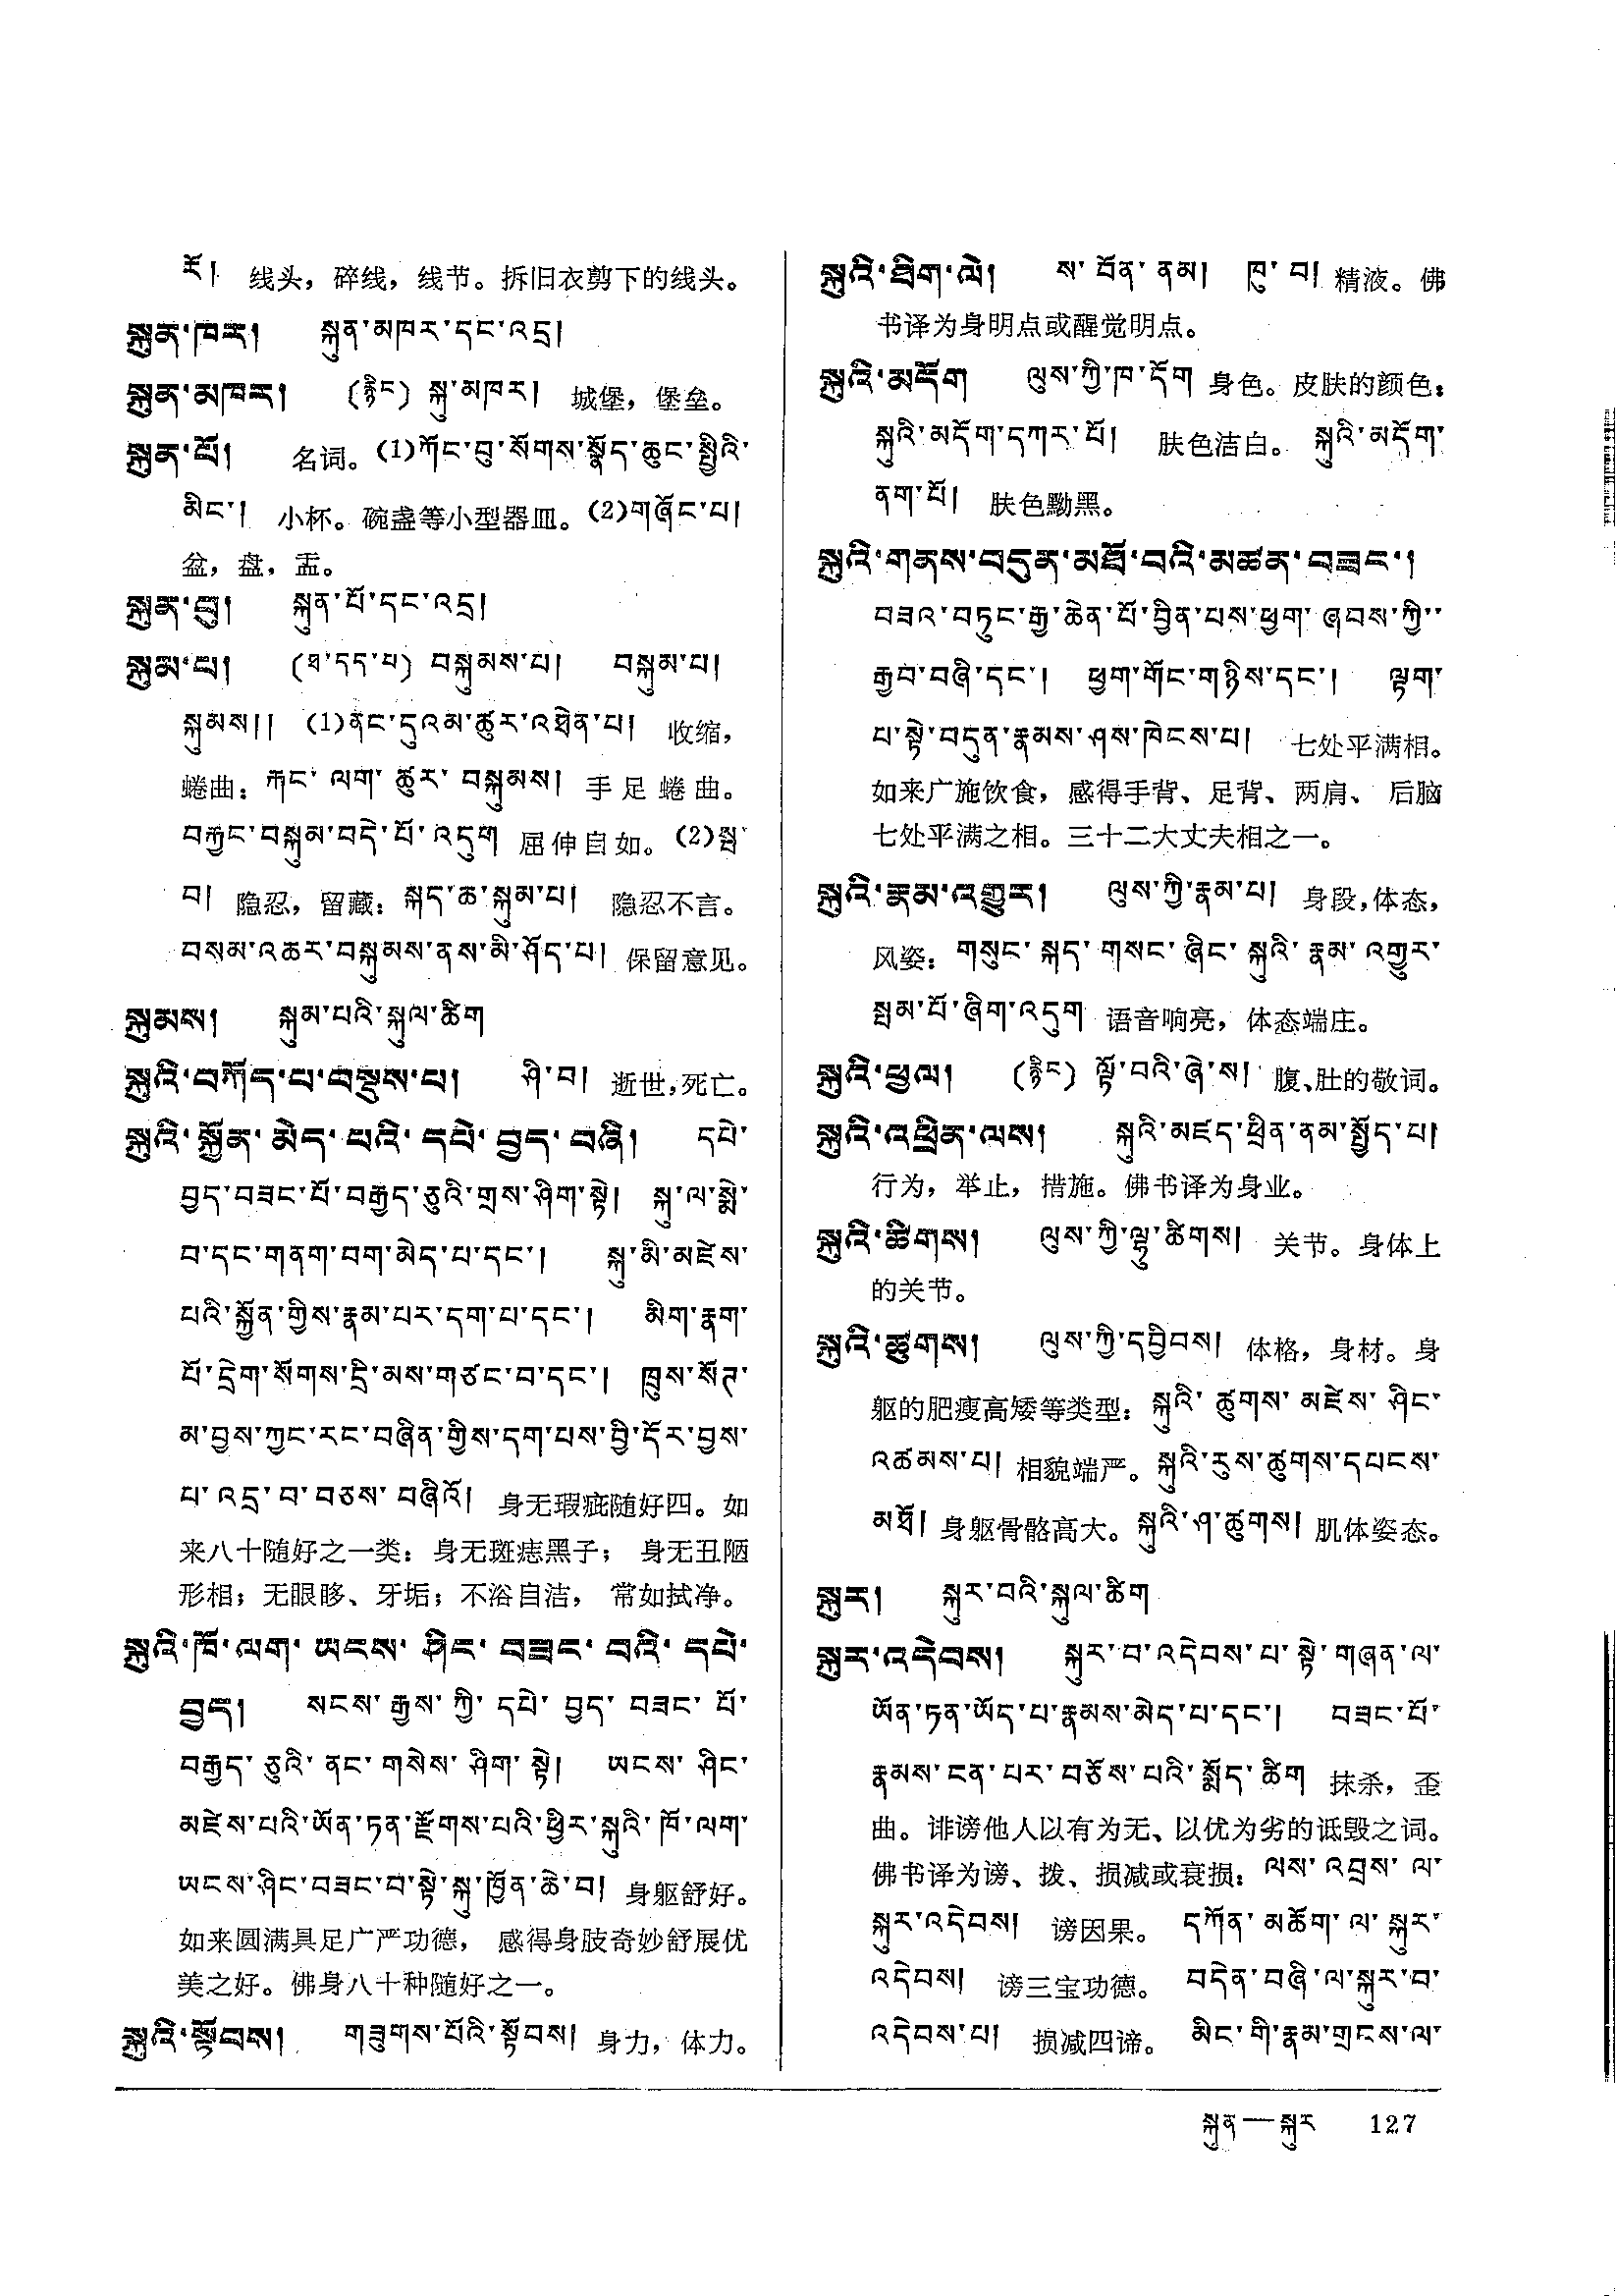 རོ། 线头，碎线，线节。拆旧衣剪下的线头。
སྐུན་ཁར། སྐུན་མཁར་དང་འདྲ།
སྐུན་མཁར། (རྙིང) སྐུ་མཁར། 城堡，堡垒。
སྐུན་པོ། 名词。(1)ཀོང་བུ་སོགས་སྣོད་ཆུང་སྤྱིའི་
མིང་། 小杯。碗盏等小型器皿。(2)གཞོང་པ།
盆，盘，盂。
སྐུན་བུ། སྐུན་པོ་དང་འདྲ།
སྐུམ་པ། (ཐ་དད་པ) བསྐུམས་པ། བསྐུམ་པ།
སྐུམས།། (1)ནང་དུའམ་ཚུར་འཐེན་པ། 收缩，
蜷曲：རྐང་ལག་ཚུར་བསྐུམས། 手足蜷曲。
བརྐྱང་བསྐུམ་བདེ་པོ་འདུག 屈伸自如。(2)སྦ་
བ། 隐忍，留藏：སྐད་ཆ་སྐུམ་པ། 隐忍不言。
བསམ་འཆར་བསྐུམས་ནས་མི་ཤོད་པ། 保留意见。
སྐུམས། སྐུམ་པའི་སྐུལ་ཚིག
སྐུའི་བཀོད་པ་བསྡུས་པ། ཤི་བ། 逝世，死亡。
སྐུའི་སྐྱོན་མེད་པའི་དཔེ་བྱད་བཞི། དཔེ་
བྱད་བཟང་པོ་བརྒྱད་ཅུའི་གྲས་ཤིག་སྟེ། སྐུ་ལ་སྨེ་
བ་དང་གནག་བག་མེད་པ་དང་། སྐུ་མི་མཛེས་
པའི་སྐྱོན་གྱིས་རྣམ་པར་དག་པ་དང་། མིག་རྣག་
པོ་དྲེག་སོགས་དྲི་མས་གཙང་བ་དང་། ཁྲུས་སོཊ་
མ་བྱས་ཀྱང་རང་བཞིན་གྱིས་དག་པས་བྱི་དོར་བྱས་
པ་འདྲ་བ་བཅས་བཞིའོ། 身无瑕疵随好四。如
来八十随好之一类：身无斑痣黑子；身无丑陋
形相；无眼眵、牙垢；不浴自洁，常如拭净。
སྐུའི་ཁོ་ལག་ཡངས་ཤིང་བཟང་བའི་དཔེ་
བྱད། སངས་རྒྱས་ཀྱི་དཔེ་བྱད་བཟང་པོ་
བརྒྱད་ཅུའི་ནང་གསེས་ཤིག་སྟེ། ཡངས་ཤིང་
མཛེས་པའི་ཡོན་ཏན་རྫོགས་པའི་ཕྱིར་སྐུའི་ཁོ་ལག་
ཡངས་ཤིང་བཟང་བ་སྟེ་སྐུ་ཁྱོན་ཆེ་བ། 身躯舒好。
如来圆满具足广严功德，感得身肢奇妙舒展优
美之好。佛身八十种随好之一。
སྐུའི་སྟོབས། གཟུགས་པོའི་སྟོབས། 身力，体力。
སྐུའི་ཐིག་ལེ། ས་བོན་ནམ། ཁུ་བ། 精液。佛
书译为身明点或醒觉明点。
སྐུའི་མདོག ལུས་ཀྱི་ཁ་དོག 身色。皮肤的颜色：
སྐུའི་མདོག་དཀར་པོ། 肤色洁白。སྐུའི་མདོག་
ནག་པོ། 肤色黝黑。
སྐུའི་གནས་བདུན་མཐོ་བའི་མཚན་བཟང་།
བཟའ་བཏུང་རྒྱ་ཆེན་པོ་བྱིན་པས་ཕྱག་ཞབས་ཀྱི་
རྒྱབ་བཞི་དང་། ཕྱག་གོང་གཉིས་དང་། ལྟག་
པ་སྟེ་བདུན་རྣམས་ཤས་ཁེངས་པ། 七处平满相。
如来广施饮食，感得手背、足背、两肩、后脑
七处平满之相。三十二大丈夫相之一。
སྐུའི་རྣམ་འགྱུར། ལུས་ཀྱི་རྣམ་པ། 身段，体态，
风姿：གསུང་སྐད་གསང་ཞིང་སྐུའི་རྣམ་འགྱུར་
སྤམ་པོ་ཞིག་འདུག 语音响亮，体态端庄。
སྐུའི་ཕྱལ། (རྙིང) ལྟོ་བའི་ཞེ་ས། 腹、肚的敬词。
སྐུའི་འཕྲིན་ལས། སྐུའི་མཛད་ཕྲིན་ནམ་སྤྱོད་པ།
行为，举止，措施。佛书译为身业。
སྐུའི་ཚིགས། ལུས་ཀྱི་ལྷུ་ཚིགས། 关节。身体上
的关节。
སྐུའི་ཚུགས། ལུས་ཀྱི་དབྱིབས། 体格，身材。身
躯的肥瘦高矮等类型：སྐུའི་ཚུགས་མཛེས་ཤིང་
འཚམས་པ། 相貌端严。སྐུའི་རུས་ཚུགས་དཔངས་
མཐོ། 身躯骨骼高大。སྐུའི་ཤ་ཚུགས། 肌体姿态。
སྐུར། སྐུར་བའི་སྐུལ་ཚིག
སྐུར་འདེབས། སྐུར་བ་འདེབས་པ་སྟེ་གཞན་ལ་
ཡོན་ཏན་ཡོད་པ་རྣམས་མེད་པ་དང་། བཟང་པོ་
རྣམས་ངན་པར་བཅོས་པའི་སྨོད་ཚིག 抹杀，歪
曲。诽谤他人以有为无、以优为劣的诋毁之词。
佛书译为谤、拨、损减或衰损：ལས་འབྲས་ལ་
སྐུར་འདེབས། 谤因果。དཀོན་མཆོག་ལ་སྐུར་
འདེབས། 谤三宝功德。བདེན་བཞི་ལ་སྐུར་བ་
འདེབས་པ། 损减四谛。མིང་གི་རྣམ་གྲངས་ལ་
སྐུན—སྐུར 127